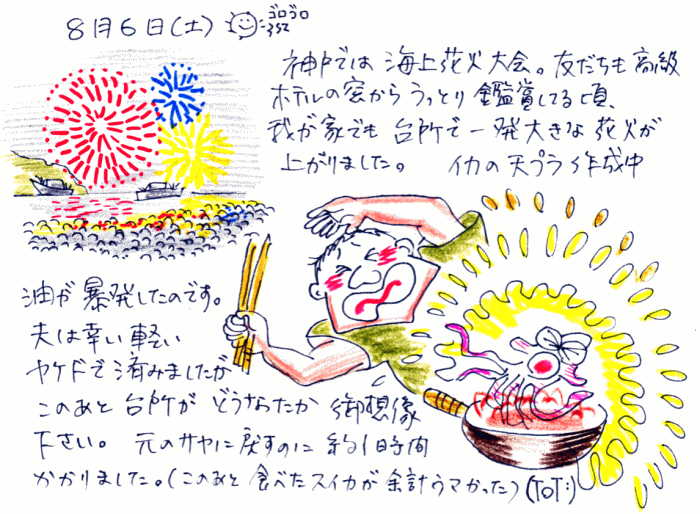 8月6日(土) ゴロゴロ
神戸では 海上花火大会。友だちも 高級
ホテルの窓から うっとり 鑑賞してる頃、
我が家でも 台所で 一発大きな 花火が
上がりました。 イカの天プラ作成中
油が 爆発したのです。
夫は幸い軽い
ヤケドで済みましたが
このあと 台所が どうなったか 御想像
下さい。 元のサヤに戻すのに 約1時間
かかりました。(このあと 食べたスイカが 余計ウマかった)(ToT;)